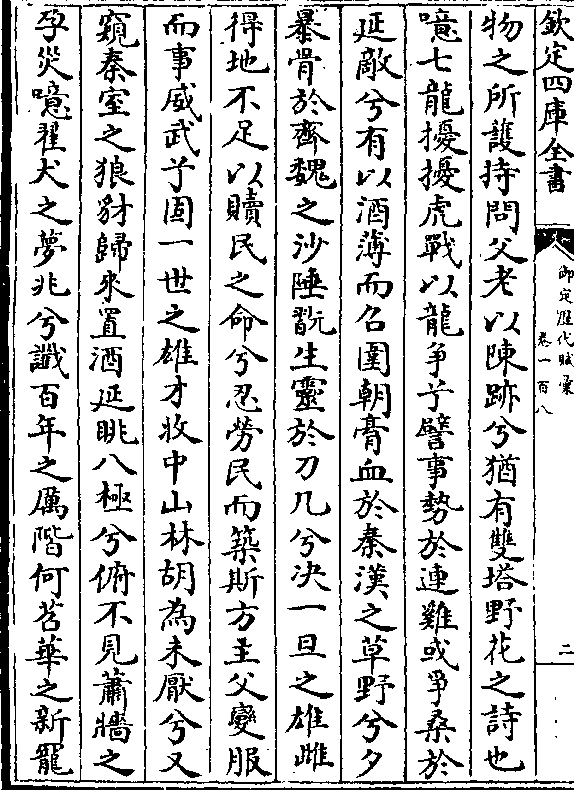 欽定四庫全書
御定歷代賦彙
卷一百八
二
物之所護持問父老以陳跡兮猶有雙塔野花之詩也
噫七龍擾擾虎戰以龍爭兮譬事勢於連雞或爭桑於
延敵兮有以酒薄而召圍朝膏血於秦漢之草野兮夕
暴骨於齊魏之沙陲翫生靈於刀几兮决一旦之雄雌
得地不足以贖民之命兮忍勞民而築斯方主父變服
而事威武兮固一世之雄才收中山林胡為未厭兮又
窺秦室之狼豺歸來置酒延眺八極兮俯不見蕭牆之
孕災噫翟犬之夢兆兮讖百年之厲階何苕華之新寵